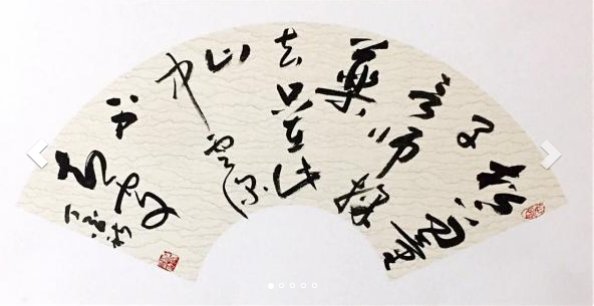 松下问童
子言师采
药
去只在此
山
中云深
不知处